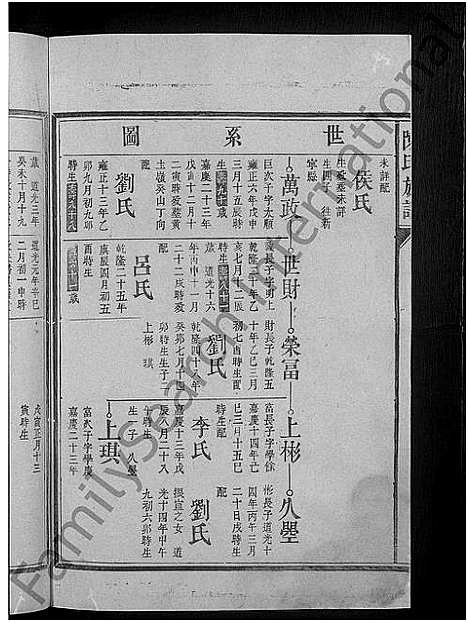 陳氏族譜
世系圖
未詳配
侯氏
生歿葬未詳
生四子 往新
寧縣
萬政
巨次子字太順
雍正六年戊申
三月十五辰時
生
嘉慶二十三年
戊寅十二月十
二寅時歿葬黃
土嶺癸山丁向
配
劉氏
雍正十三年乙
卯九月初九卯
時生
世財
政長子字明上
乾隆二十年乙
亥七月十二戌
時生
歲 道光十六
年丙申十一月
二十戌時歿
配
呂氏
乾隆二十五年
庚辰四月初五
酉時生
榮冨
財長子乾隆五
十年乙巳三月
初七酉時生配
劉氏
乾隆四十八年
癸卯七月十三
卯時生生子二
上彬 琪
上彬
富長子字學修
嘉慶十四年己
巳三月十五巳
時生配
李氏
嘉慶十三年戊
辰八月二十八
午時生
生一子 久壂
上琪
富次子字學慶
嘉慶二十三年
戊寅正月十三
寅時生
久壂
彬長子道光十
四年丙午三月
二十日戌時生
配
劉氏
振宣之女 道
光十四年甲午
九初六卯時生
歲 道光三年
癸未十月十九
道光元年辛巳
二月初一申時
FamilySearch International